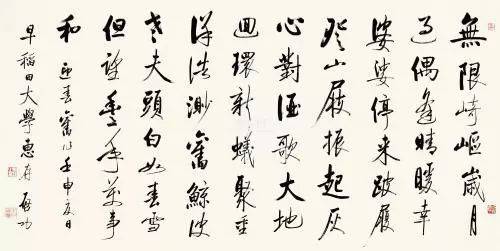 無限崎嶇歲月
過偶逢晴暖幸
婆娑停来跛履
登山屐振起灰
心對酒歌大地
迴環新蟻聚重
洋浩渺舊鯨波
老夫頭白如春雪
但望年年萬事
和 迎春舊作壬申夏日
早稻田大學惠存 啟功